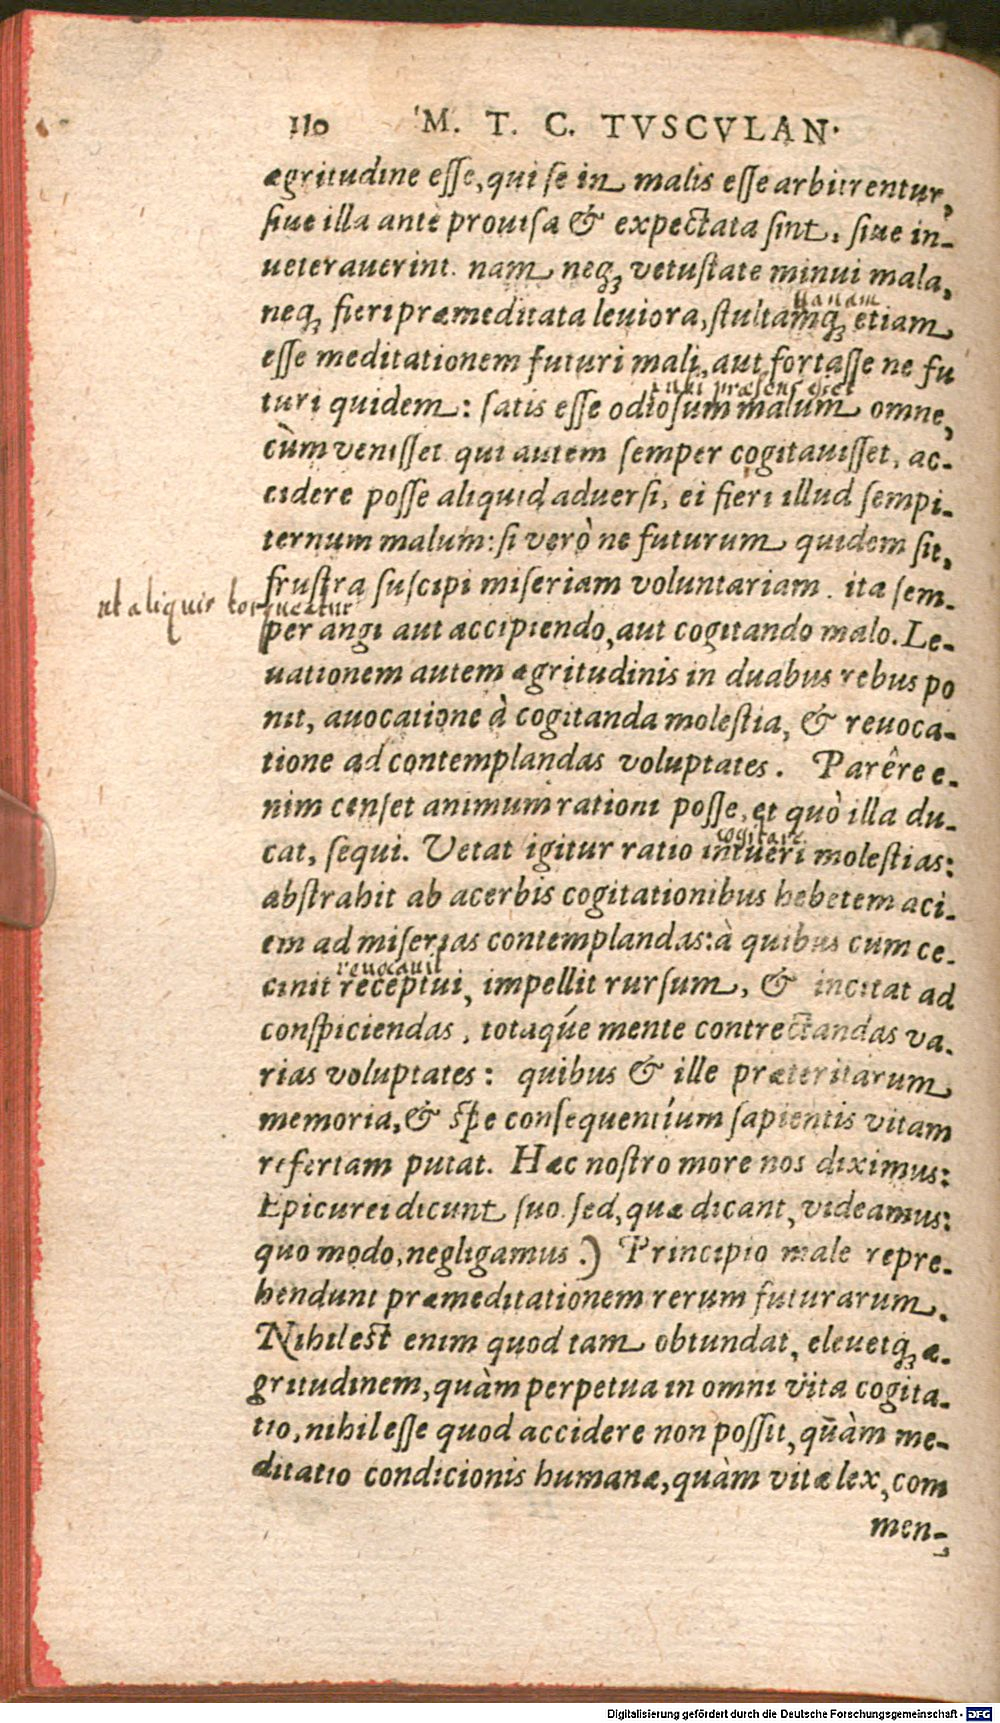 110 M. T. C. TVSCVLAN.
ægritudine esse, qui se in malis esse arbitrentur,
siue illa antè prouisa & expectata sint, siue in-
ueterauerint. nam neq; vetustate minui mala,
uanam
neq; fieri præmeditata leuiora, stultamq; etiam
esse meditationem futuri mali, aut fortasse ne fu
præsens esset
turi quidem: satis esse odiosum malum omne,
cùm venisset qui autem semper cogitauisset, ac-
cidere posse aliquid aduersi, ei fieri illud sempi-
ternum malum: si verò ne futurum quidem sit,
frustra suscipi miseriam voluntariam. ita sem-
ut aliquis torqueatur
per angi aut accipiendo, aut cogitando malo. Le-
uationem autem ægritudinis in duabus rebus po
nit, auocatione à cogitanda molestia, & reuoca-
tione ad contemplandas voluptates. Parêre e-
nim censet animum rationi posse, et quò illa du-
cogitare
cat, sequi. Vetat igitur ratio intueri molestias:
abstrahit ab acerbis cogitationibus hebetem aci-
em ad miserias contemplandas: à quibus cum ce-
reuocauit
cinit receptui, impellit rursum, & incitat ad
conspiciendas, totaq́ue mente contrectandas va-
rias voluptates: quibus & ille præteritarum
memoria, & spe consequentíum sapientis vitam
refertam putat. Hæc nostro more nos diximus:
Epicurei dicunt suo. sed, quæ dicant, videamus:
quo modo, negligamus.) Principio male repre-
hendunt præmeditationem rerum futurarum.
Nihil est enim quod tam obtundat, eleuetq; æ-
gritudinem, quàm perpetua in omni vita cogita-
tio, nihil esse quod accidere non possit, quàm me-
ditatio condicionis humanæ, quàm vitæ lex, com
men-
Digitalisierung gefördert durch die Deutsche Forschungsgemeinschaft - DFG